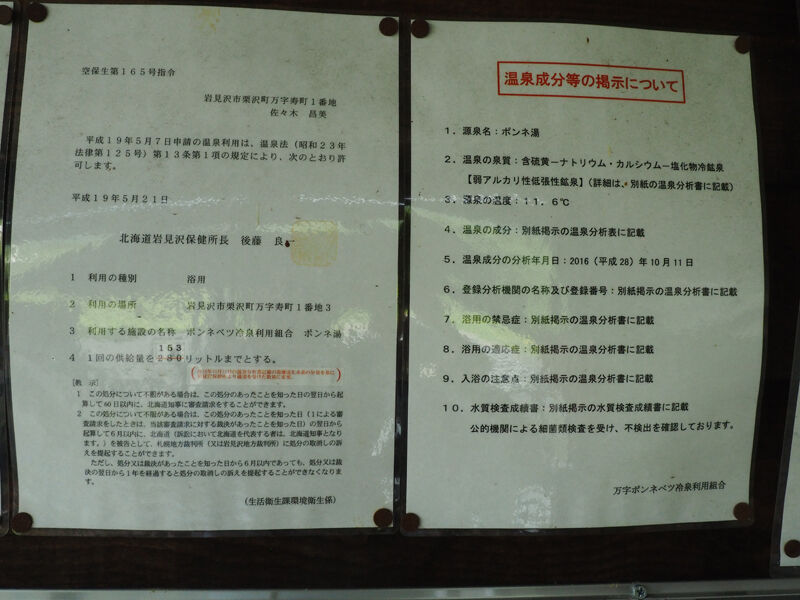 空保生第165号指令
岩見沢市栗沢町万字寿町1番地
佐々木 昌美
平成19年5月7日申請の温泉利用は、温泉法(昭和23年
法律第125号)第13条第1項の規定により、次のとおり許
可します。
平成19年5月21日
北海道岩見沢保健所長 後藤 良一
1 利用の種別 浴用
2 利用の場所 岩見沢市栗沢町万字寿町1番地3
3 利用する施設の名称 ポンネベツ冷泉利用組合 ポンネ湯
153
4 1回の供給量を280リットルまでとする。
[教 示]
1 この処分について不服がある場合は、この処分のあったことを知った日の翌日から起
算して60日以内に、北海道知事に審査請求をすることができます。
2 この処分について不服がある場合は、この処分のあったことを知った日(1による審
査請求をしたときは、当該審査請求に対する裁決があったことを知った日)の翌日から
起算して6月以内に、北海道(訴訟において北海道を代表する者は、北海道知事となり
ます。)を被告として、札幌地方裁判所(又は岩見沢地方裁判所)に処分の取消しの訴
えを提起することができます。
ただし、処分又は裁決があったことを知った日から6月以内であっても、処分又は裁
決の翌日から1年を経過すると処分の取消しの訴えを提起することができなくなりま
す。
(生活衛生課環境衛生係)
温泉成分等の掲示について
1.源泉名:ポンネ湯
2.温泉の泉質:含硫黄ーナトリウム・カルシウムー塩化物冷鉱泉
【弱アルカリ性低張性鉱泉】(詳細は、別紙の温泉分析書に記載)
3.源泉の温度:11.6℃
4.温泉の成分:別紙掲示の温泉分析表に記載
5.温泉成分の分析年月日:2016(平成28)年10月11日
6.登録分析機関の名称及び登録番号:別紙掲示の温泉分析書に記載
7.浴用の禁忌症:別紙掲示の温泉分析書に記載
8.浴用の適応症:別紙掲示の温泉分析書に記載
9.入浴の注意点:別紙掲示の温泉分析書に記載
10.水質検査成績書:別紙掲示の水質検査成績書に記載
公的機関による細菌類検査を受け、不検出を確認しております。
万字ポンネベツ冷泉利用組合